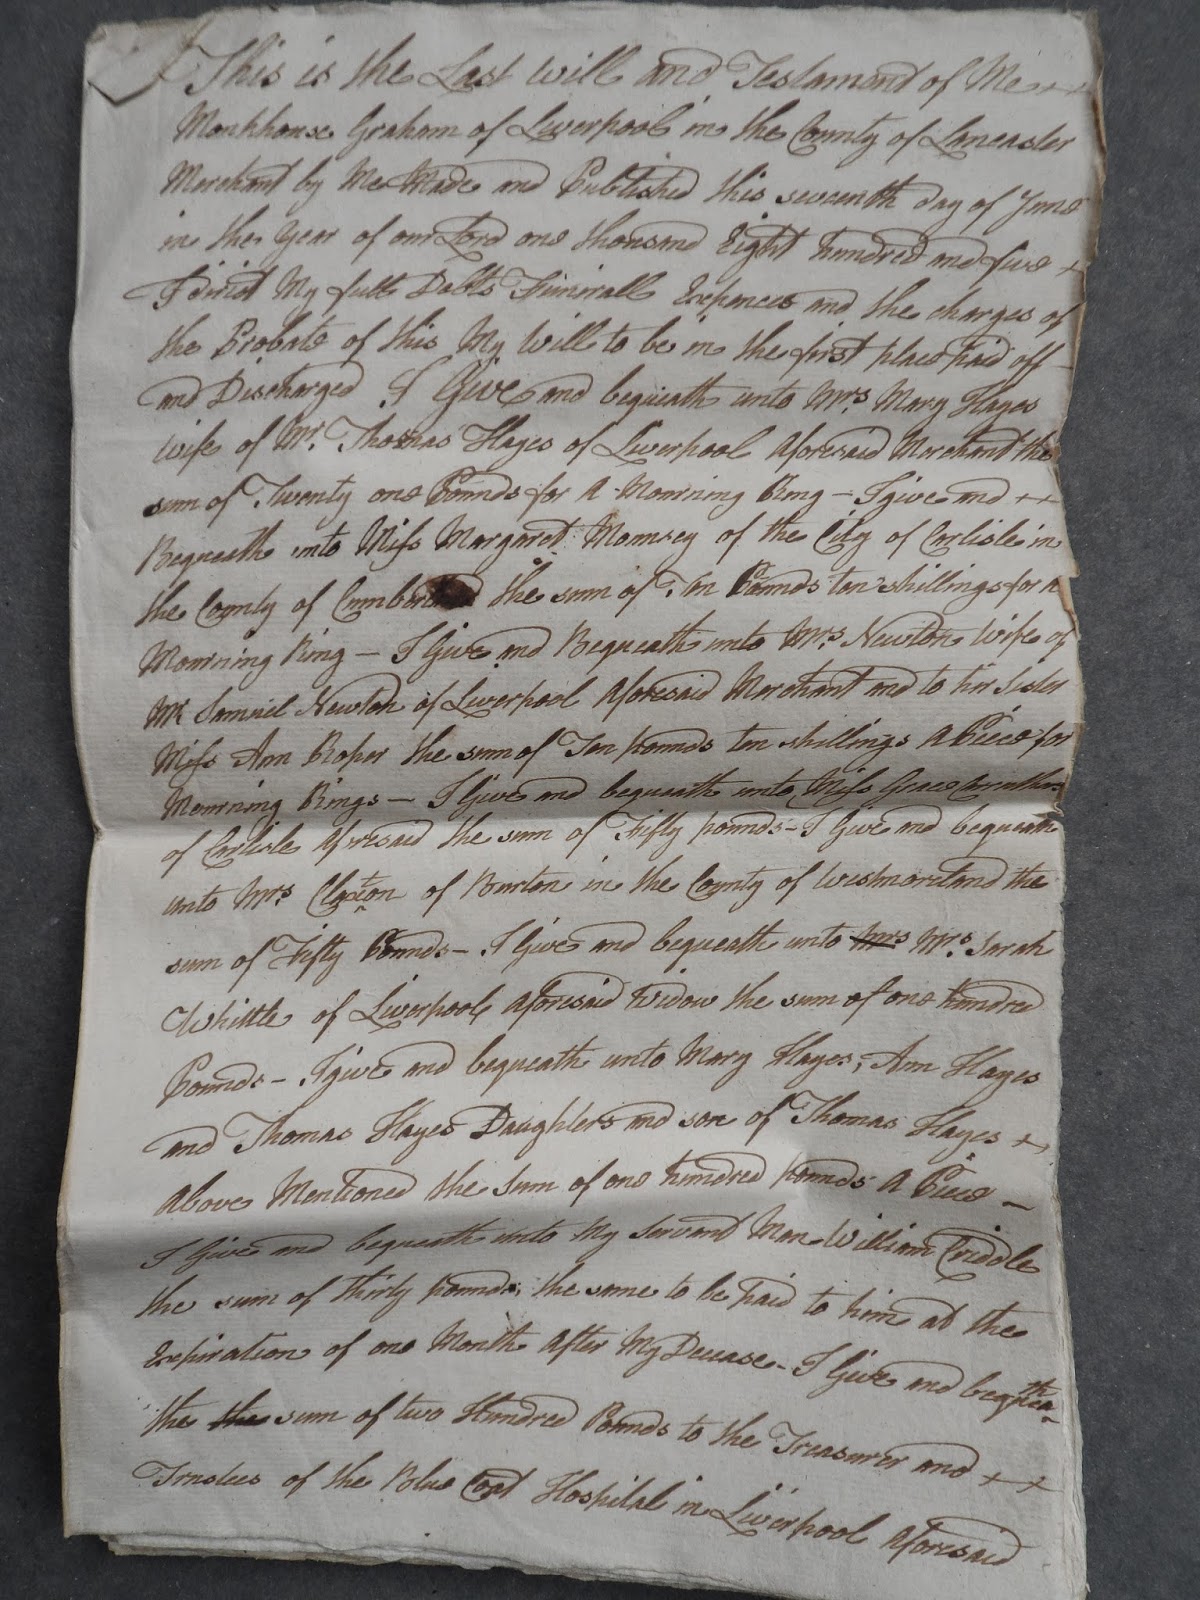 This is the Last Will and Testament of Me
Monkhouse Graham of Liverpool in the County of Lancaster
Merchant by Me Made and Published this seventh day of June
in the Year of our Lord one thousand Eight hundred and five
I direct My full Debts Funirall Expences and the charges of
the Probate of this My Will to be in the first place paid off
and Discharged I Give and bequeath unto Mrs. Mary Hayes
wife of Mr. Thomas Hayes of Liverpool Aforesaid Merchant the
sum of Twenty one Pounds for A Mourning Ring – I give and
Bequeath unto Miss Margaret Mounsey of the City of Carlisle in
the County of Cumberland the sum of Ten Pounds ten shillings for a
Mourning Ring – I Give and Bequeath unto Mrs. Newton Wife of
Mr Samuel Newton of Liverpool Aforesaid Merchant and to her Sister
Miss Ann Roper the sum of Ten pounds ten shillings A Piece for
Mourning Rings – I Give and bequeath unto Miss Grace
of Carlisle Aforesaid the sum of Fifty pounds – I Give and bequeath
unto Mrs. Claxton of Burton in the County of Westmoreland the
sum of Fifty Pounds – I Give and bequeath unto Mrs Mrs. Sarah
Whittle of Liverpool Aforesaid Widow the sum of one hundred
Pounds – I give and bequeath unto Mary Hayes, Ann Hayes
and Thomas Hayes Daughters and son of Thomas Hayes
Above Mentioned the Sum of one hundred pounds A Piece –
I Give and bequeath unto My Servant Man William Criddle
the sum of thirty pounds, the same to be paid to him at the
Expiration of one Month After My Decease – I Give and bequeath
the the sum of two Hundred Pounds to the Treasurer and
Trustees of the Blue Coat Hospital in Liverpool Aforesaid